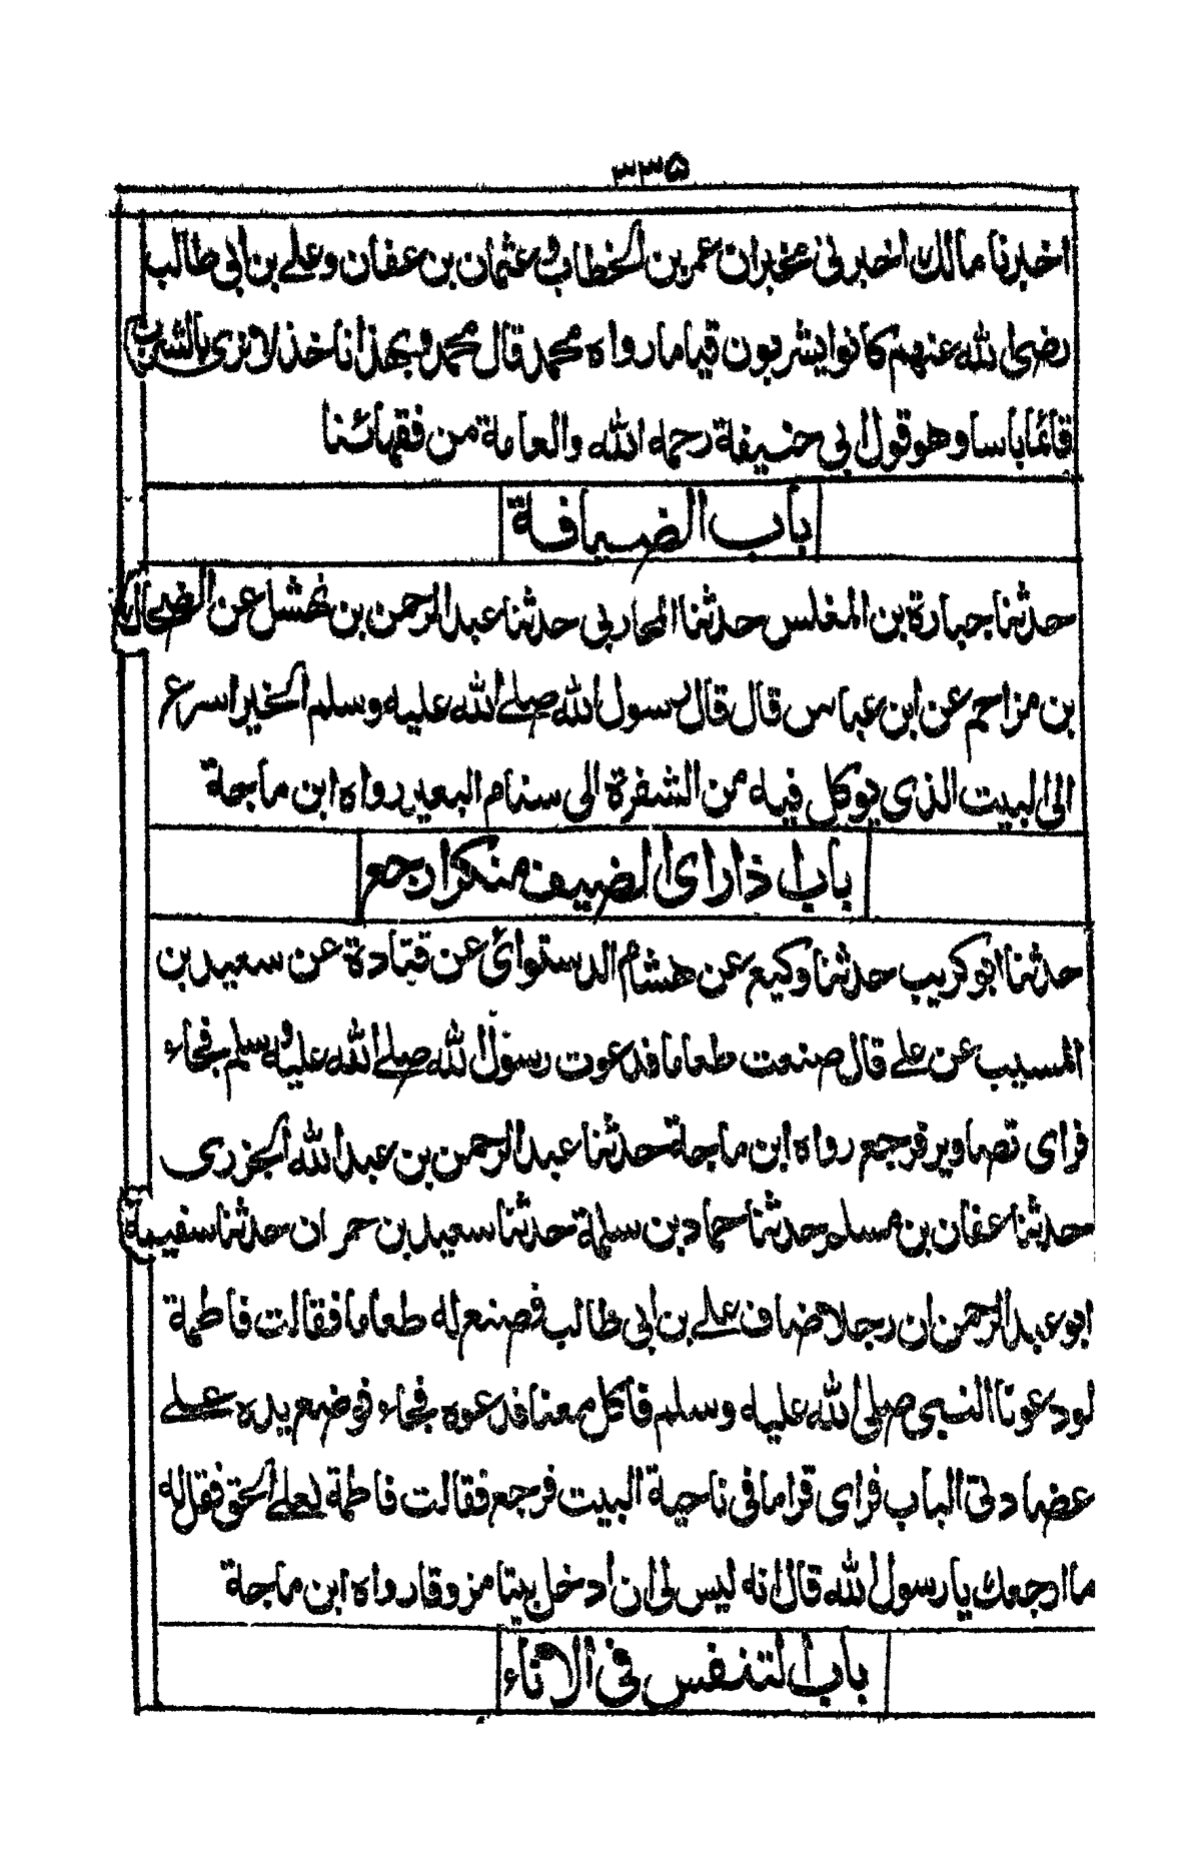 ۳۳۵
اخبرنا مالك اخبرنی مخبران عمر بن الخطاب و عثمان بن عفان و علے بن ابی طالب
رضی الله عنهم کانوا یشربون قیاما رواه محمد قال محمد و بهذا ناخذ لا نری بالشرب
قائما باسا وهو قول ابی حنیفة رحمه الله والعامة من فقهائنا
باب الضیافة
حدثنا جبارة بن المغلس حدثنا المحاربی حدثنا عبد الرحمن بن نهشل عن الضحاك
بن مزاحم عن ابن عباس قال قال رسول الله صلے الله علیه وسلم الخیر اسرع
الی البیت الذی یوکل فیه من الشفرة الی سنام البعیر رواه ابن ماجة
باب اذا رای الضیف منکرا رجع
حدثنا ابو کریب حدثنا وکیع عن هشام الدستوائی عن قتادة عن سعید بن
المسیب عن علے قال صنعت طعاما فدعوت رسول الله صلے الله علیه وسلم فجاء
فرای تصاویر فرجع رواه ابن ماجة حدثنا عبد الرحمن بن عبد الله الجزری
حدثنا عفان بن مسلم حدثنا حماد بن سلمة حدثنا سعید بن حمران حدثنا سفینة
ابو عبد الرحمن ان رجلا ضاف علے بن ابی طالب فصنع له طعاما فقالت فاطمة
لو دعونا النبی صلی الله علیه وسلم فاکل معنا فدعوه فجاء فوضع یده علے
عضادتی الباب فرای قراما فی ناحیة البیت فرجع فقالت فاطمة لعلے الحق فقل له
ما ارجعك یا رسول الله قال انه لیس لی ان ادخل بیتا مزوقا رواه ابن ماجة
باب التنفس فی الاناء